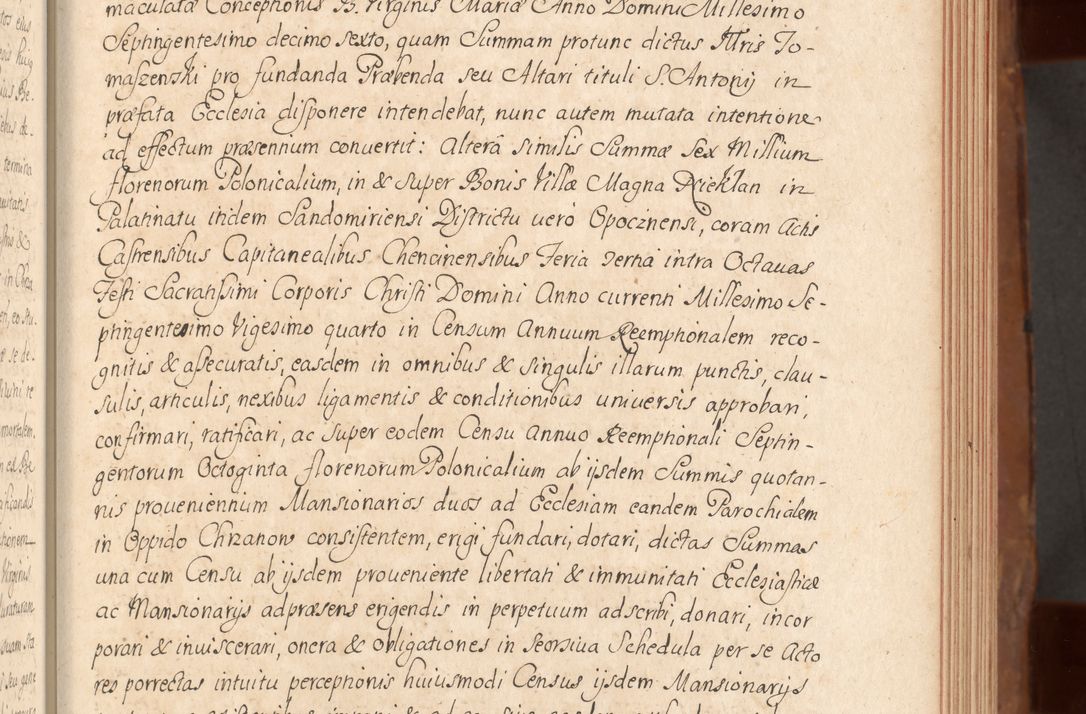 maculatæ Conceptionis B. Virginis Mariæ Anno Domini Millesimo
Septingentesimo decimo sexto, quam Summam protunc dictus Illris To-
maszenski pro fundanda Præbenda seu Altari tituli S. Antonij in
præfata Ecclesia disponere intendebat, nunc autem mutata intentione
ad effectum præsennium convertit: Alterã similis Summæ Sex Millium
florenorum Polonicalium, in & super Bonis Villæ Magna Niekłan in
Palatinatu itidem Sandomiriensi Districtu uero Opocznensi, coram Actis
Castrensibus Capitanealibus Chencinensibus Feria tertia intra Octauas
Festi Sacratissimi Corporis Christi Domini Anno currenti Millesimo Se-
ptingentesimo Vigesimo quarto in Censum Annuum Reemptionalem reco-
gnitis & assecuratis, easdem in omnibus & singulis illarum punctis, clau-
sulis, articulis, nexibus ligamentis & conditionibus universis approbari,
confirmari, ratificari, ac super eodem Censu annuo Reemptionali Septin-
gentorum Octoginta florenorum Polonicalium ab ijsdem Summis quotan-
nis proueniennium Mansionarios duos ad Ecclesiam eandem Parochialem
in Oppido Chrzanow consistentem, erigi fundari, dotari, dictas Summas
una cum Censu ab ijsdem proueniente libertati & immunitati Ecclesiasticæ
ac Mansionarijs ad præsens erigendis in perpetuum adscribi, donari, incor
porari & inuiscerari, onera & obligationes in seorsiua Schedula per se Acto
res porrectas intuitu perceptionis huiusmodi Census ijsdem Mansionarijs